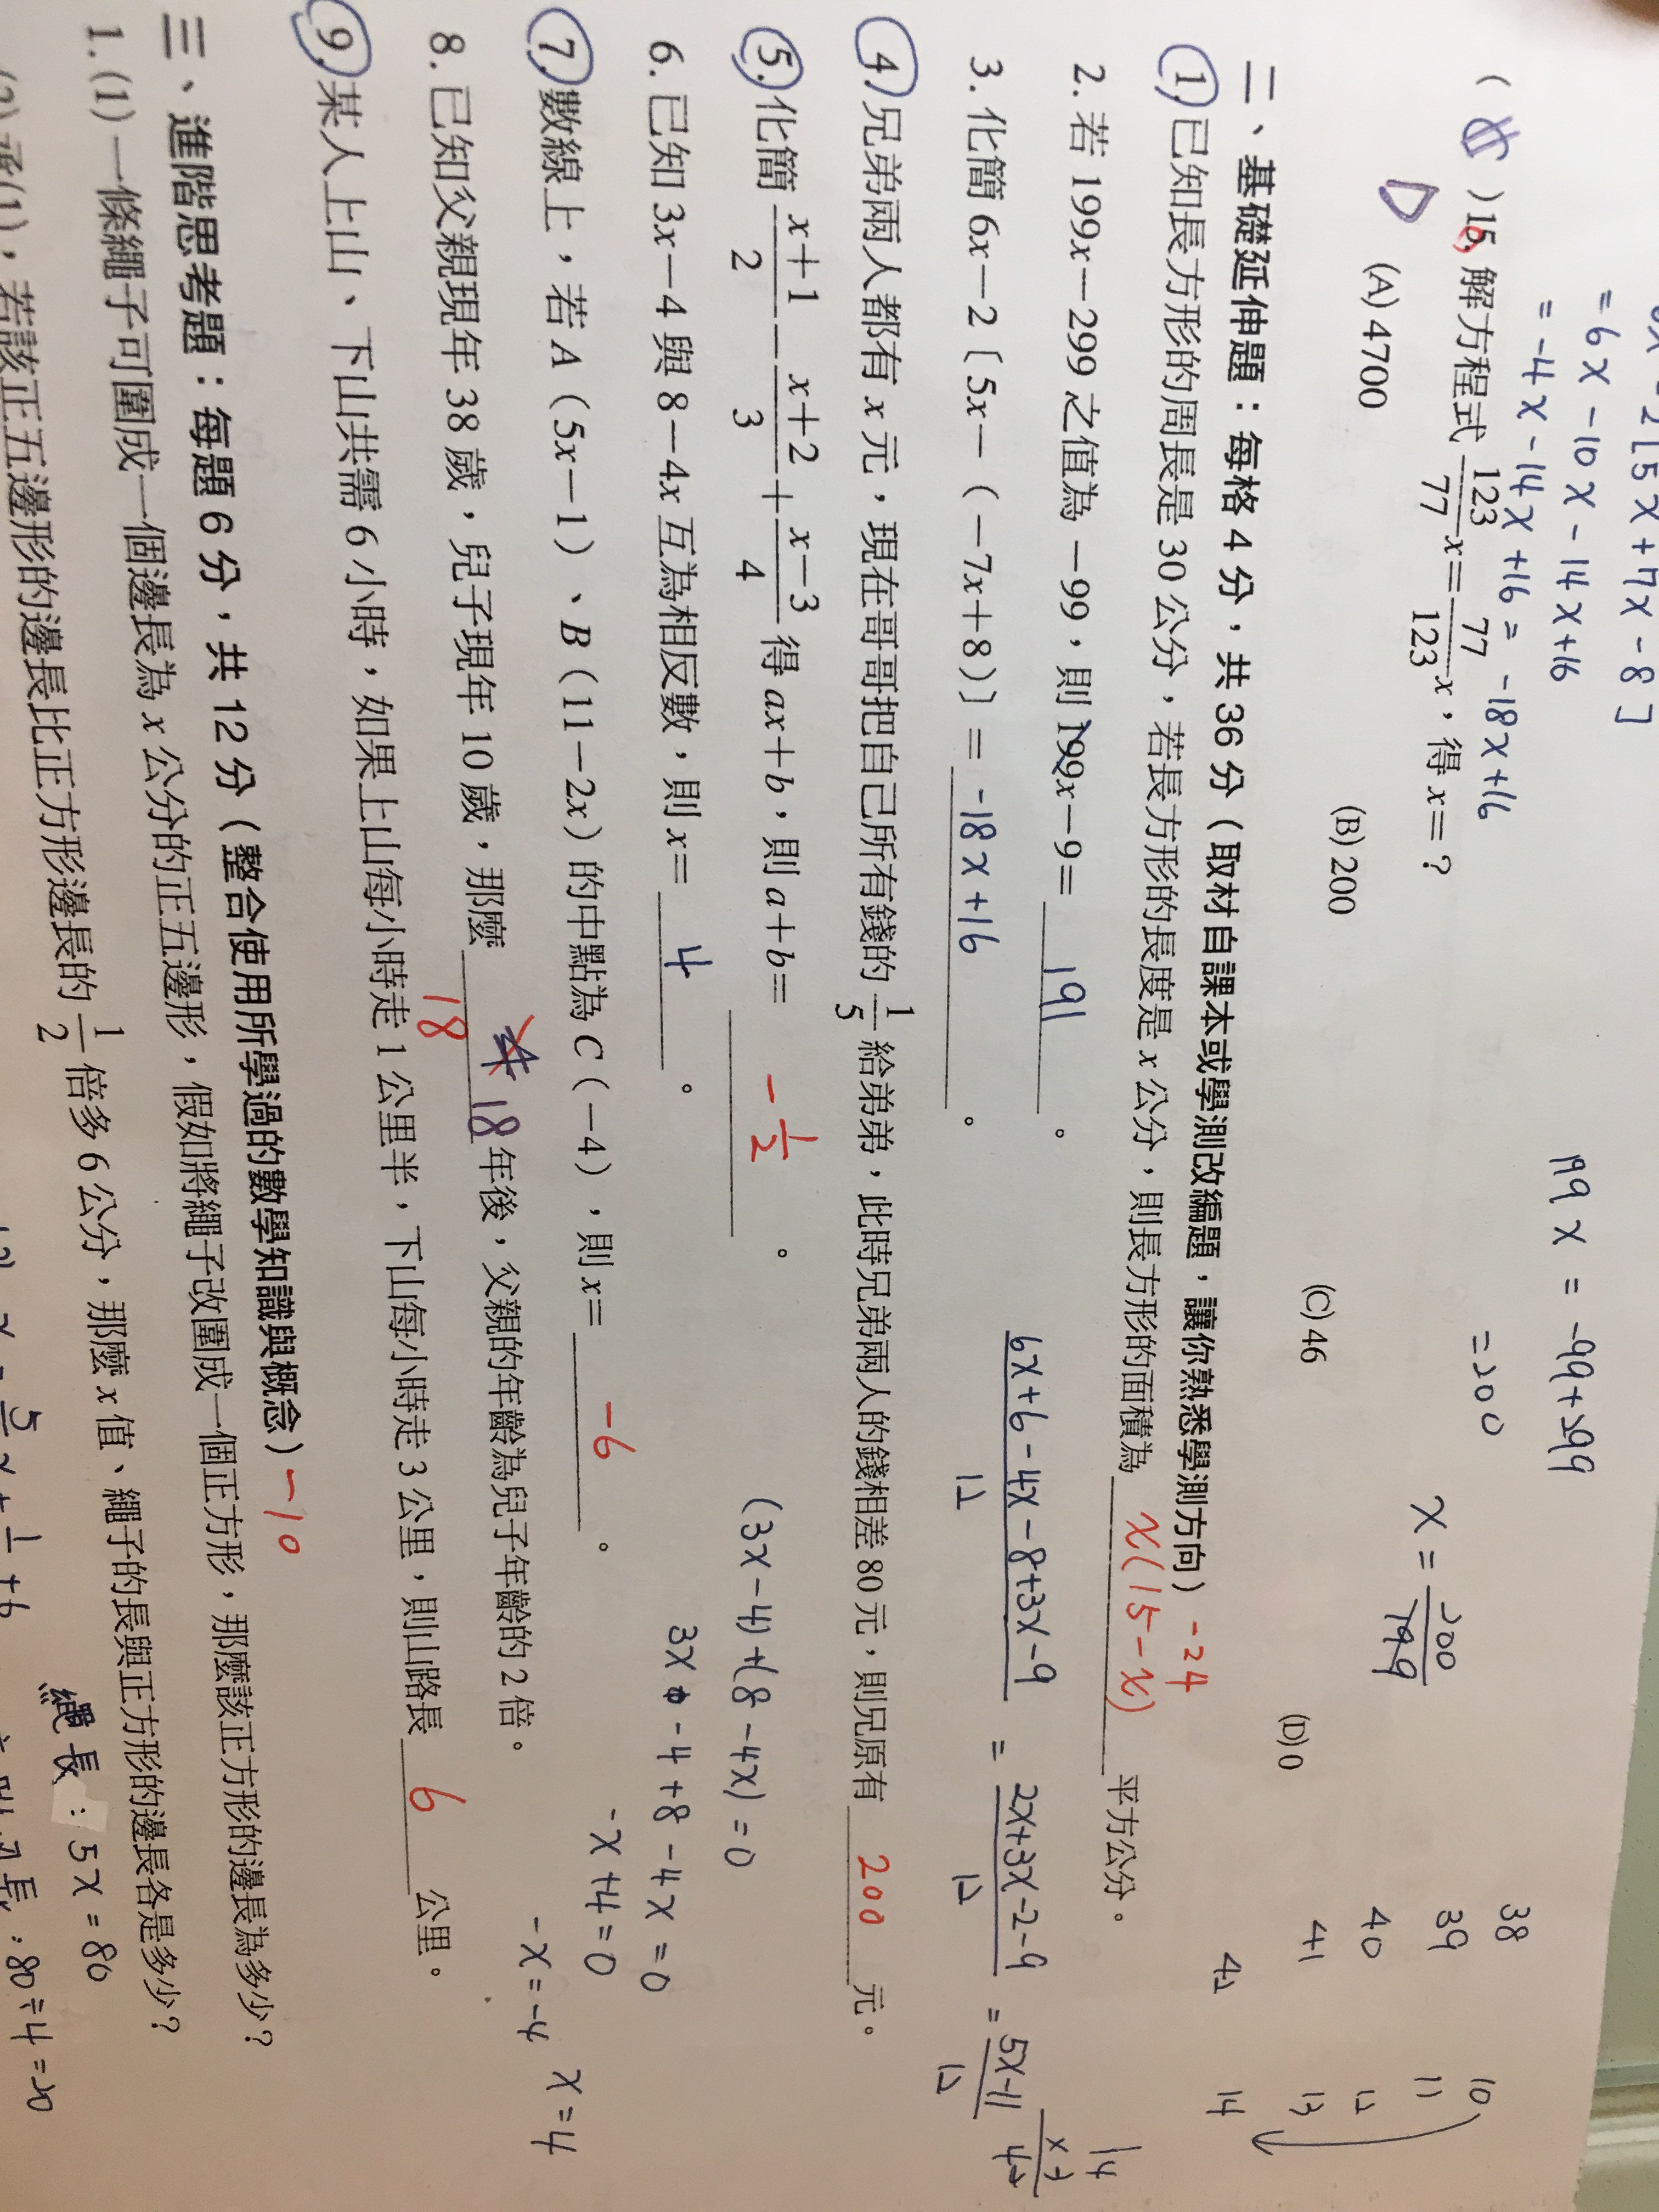 6x-2[5x+7x-8]
=6x-10x-14x+16
=-4x-14x+16=-18x+16
( ) 15. 解方程式 123/77 x=77/123 x,得 x=?
D
(A) 4700 (B) 200 (C) 46 (D) 0
199x=-99+299
=200
x=200/199
38 10
39 11
40 12
41 13
42 14
二、基礎延伸題:每格 4 分,共 36 分(取材自課本或學測改編題,讓你熟悉學測方向) -24
1. 已知長方形的周長是 30 公分,若長方形的長度是 x 公分,則長方形的面積為 x(15-x) 平方公分。
2. 若 199x-299 之值為-99,則 199x-9= 191 。
3. 化簡 6x-2〔5x-(-7x+8)〕= -18x+16 。
4. 兄弟兩人都有 x 元,現在哥哥把自己所有錢的 1/5 給弟弟,此時兄弟兩人的錢相差 80 元,則兄原有 200 元。
(6x+6-4x-8+3x-9)/12 = (2x+3x-2-9)/12 = (5x-11)/12
5. 化簡 (x+1)/2-(x+2)/3+(x-3)/4 得 ax+b,則 a+b= -1/2 。
(3x-4)+(8-4x)=0
6. 已知 3x-4 與 8-4x 互為相反數,則 x= 4 。
3x-4+8-4x=0
-x+4=0
-x=-4
x=4
7. 數線上,若 A(5x-1)、B(11-2x)的中點為 C(-4),則 x= -6 。
8. 已知父親現年 38 歲,兒子現年 10 歲,那麼 18 年後,父親的年齡為兒子年齡的 2 倍。
18
9. 某人上山、下山共需 6 小時,如果上山每小時走 1 公里半,下山每小時走 3 公里,則山路長 6 公里。
三、進階思考題:每題 6 分,共 12 分(整合使用所學過的數學知識與概念) -10
1. (1) 一條繩子可圍成一個邊長為 x 公分的正五邊形,假如將繩子改圍成一個正方形,那麼該正方形的邊長為多少?
(2) 承(1),若該正五邊形的邊長比正方形邊長的 1/2 倍多 6 公分,那麼 x 值、繩子的長與正方形的邊長各是多少?
繩長:5x=80
80÷4=20